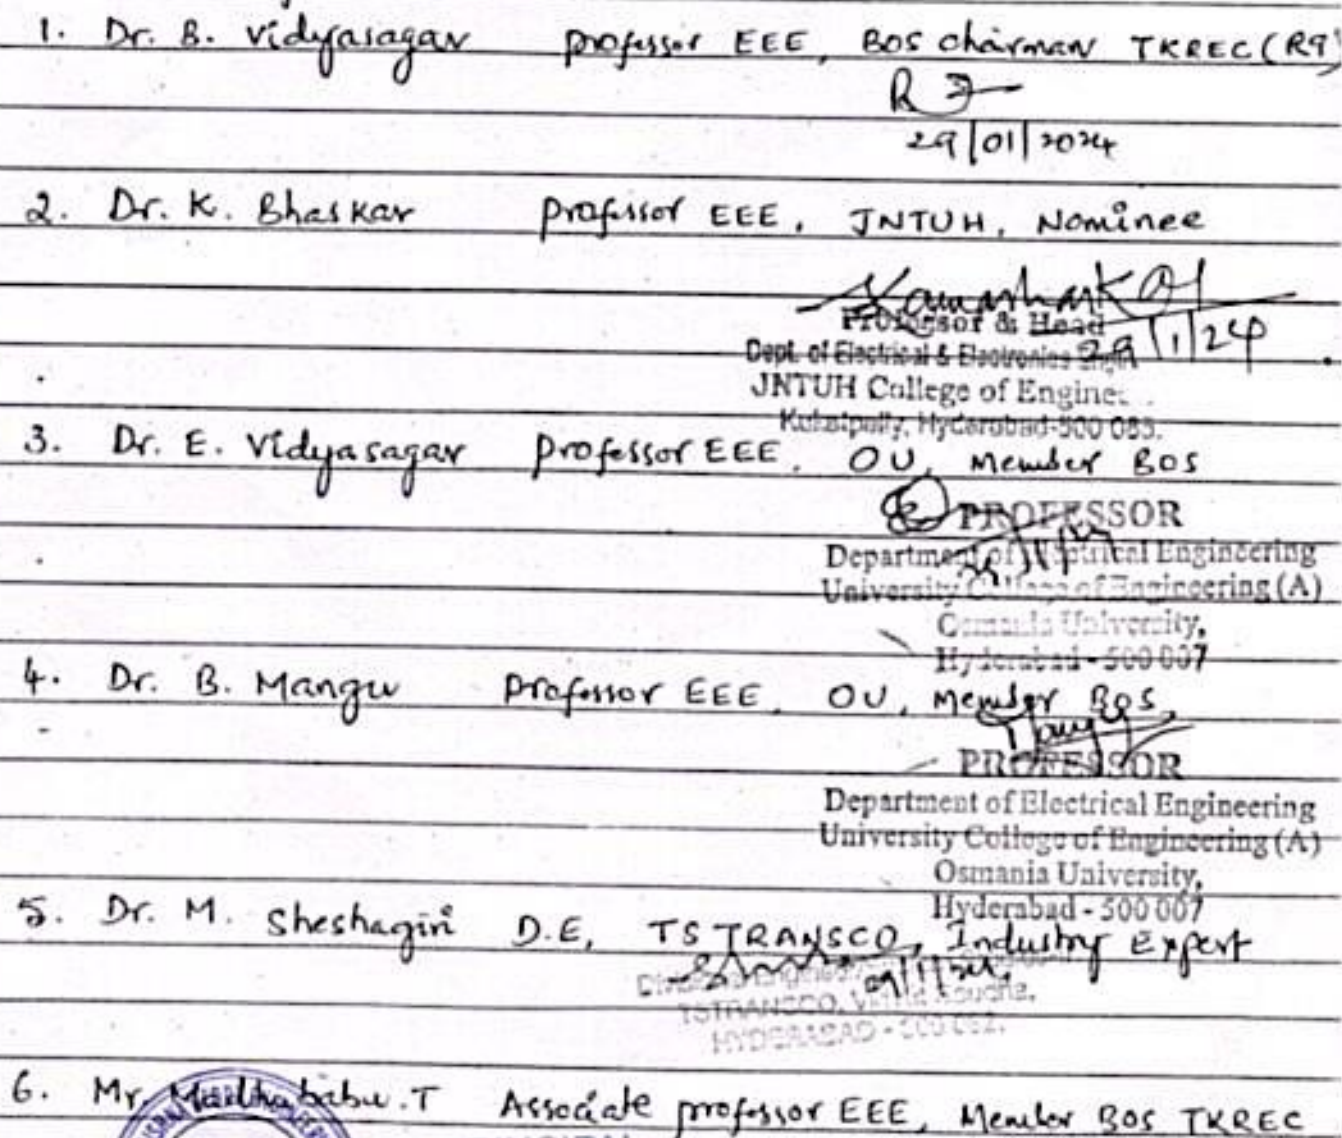 1. Dr. B. Vidyasagar professor EEE, BOS chairman TKREC (R9)
29/01/2024
2. Dr. K. Bhaskar professor EEE, JNTUH, Nominee
Professor & Head
29/1/24
Dept. of Electrical & Electronics
JNTUH College of Engine
Kukatpally, Hyderabad-500 085.
3. Dr. E. Vidyasagar professor EEE, OU, Member BOS
PROFESSOR
Department of Electrical Engineering
University College of Engineering (A)
Osmania University,
Hyderabad - 500 007
4. Dr. B. Mangu professor EEE, OU, Member BOS
PROFESSOR
Department of Electrical Engineering
University College of Engineering (A)
Osmania University,
Hyderabad - 500 007
5. Dr. M. Sheshagiri D.E, TSTRANSCO, Industry Expert
TSTRANSCO,
HYDERABAD -
6. Mr. Madhubabu.T Associate professor EEE, Member BOS TKREC